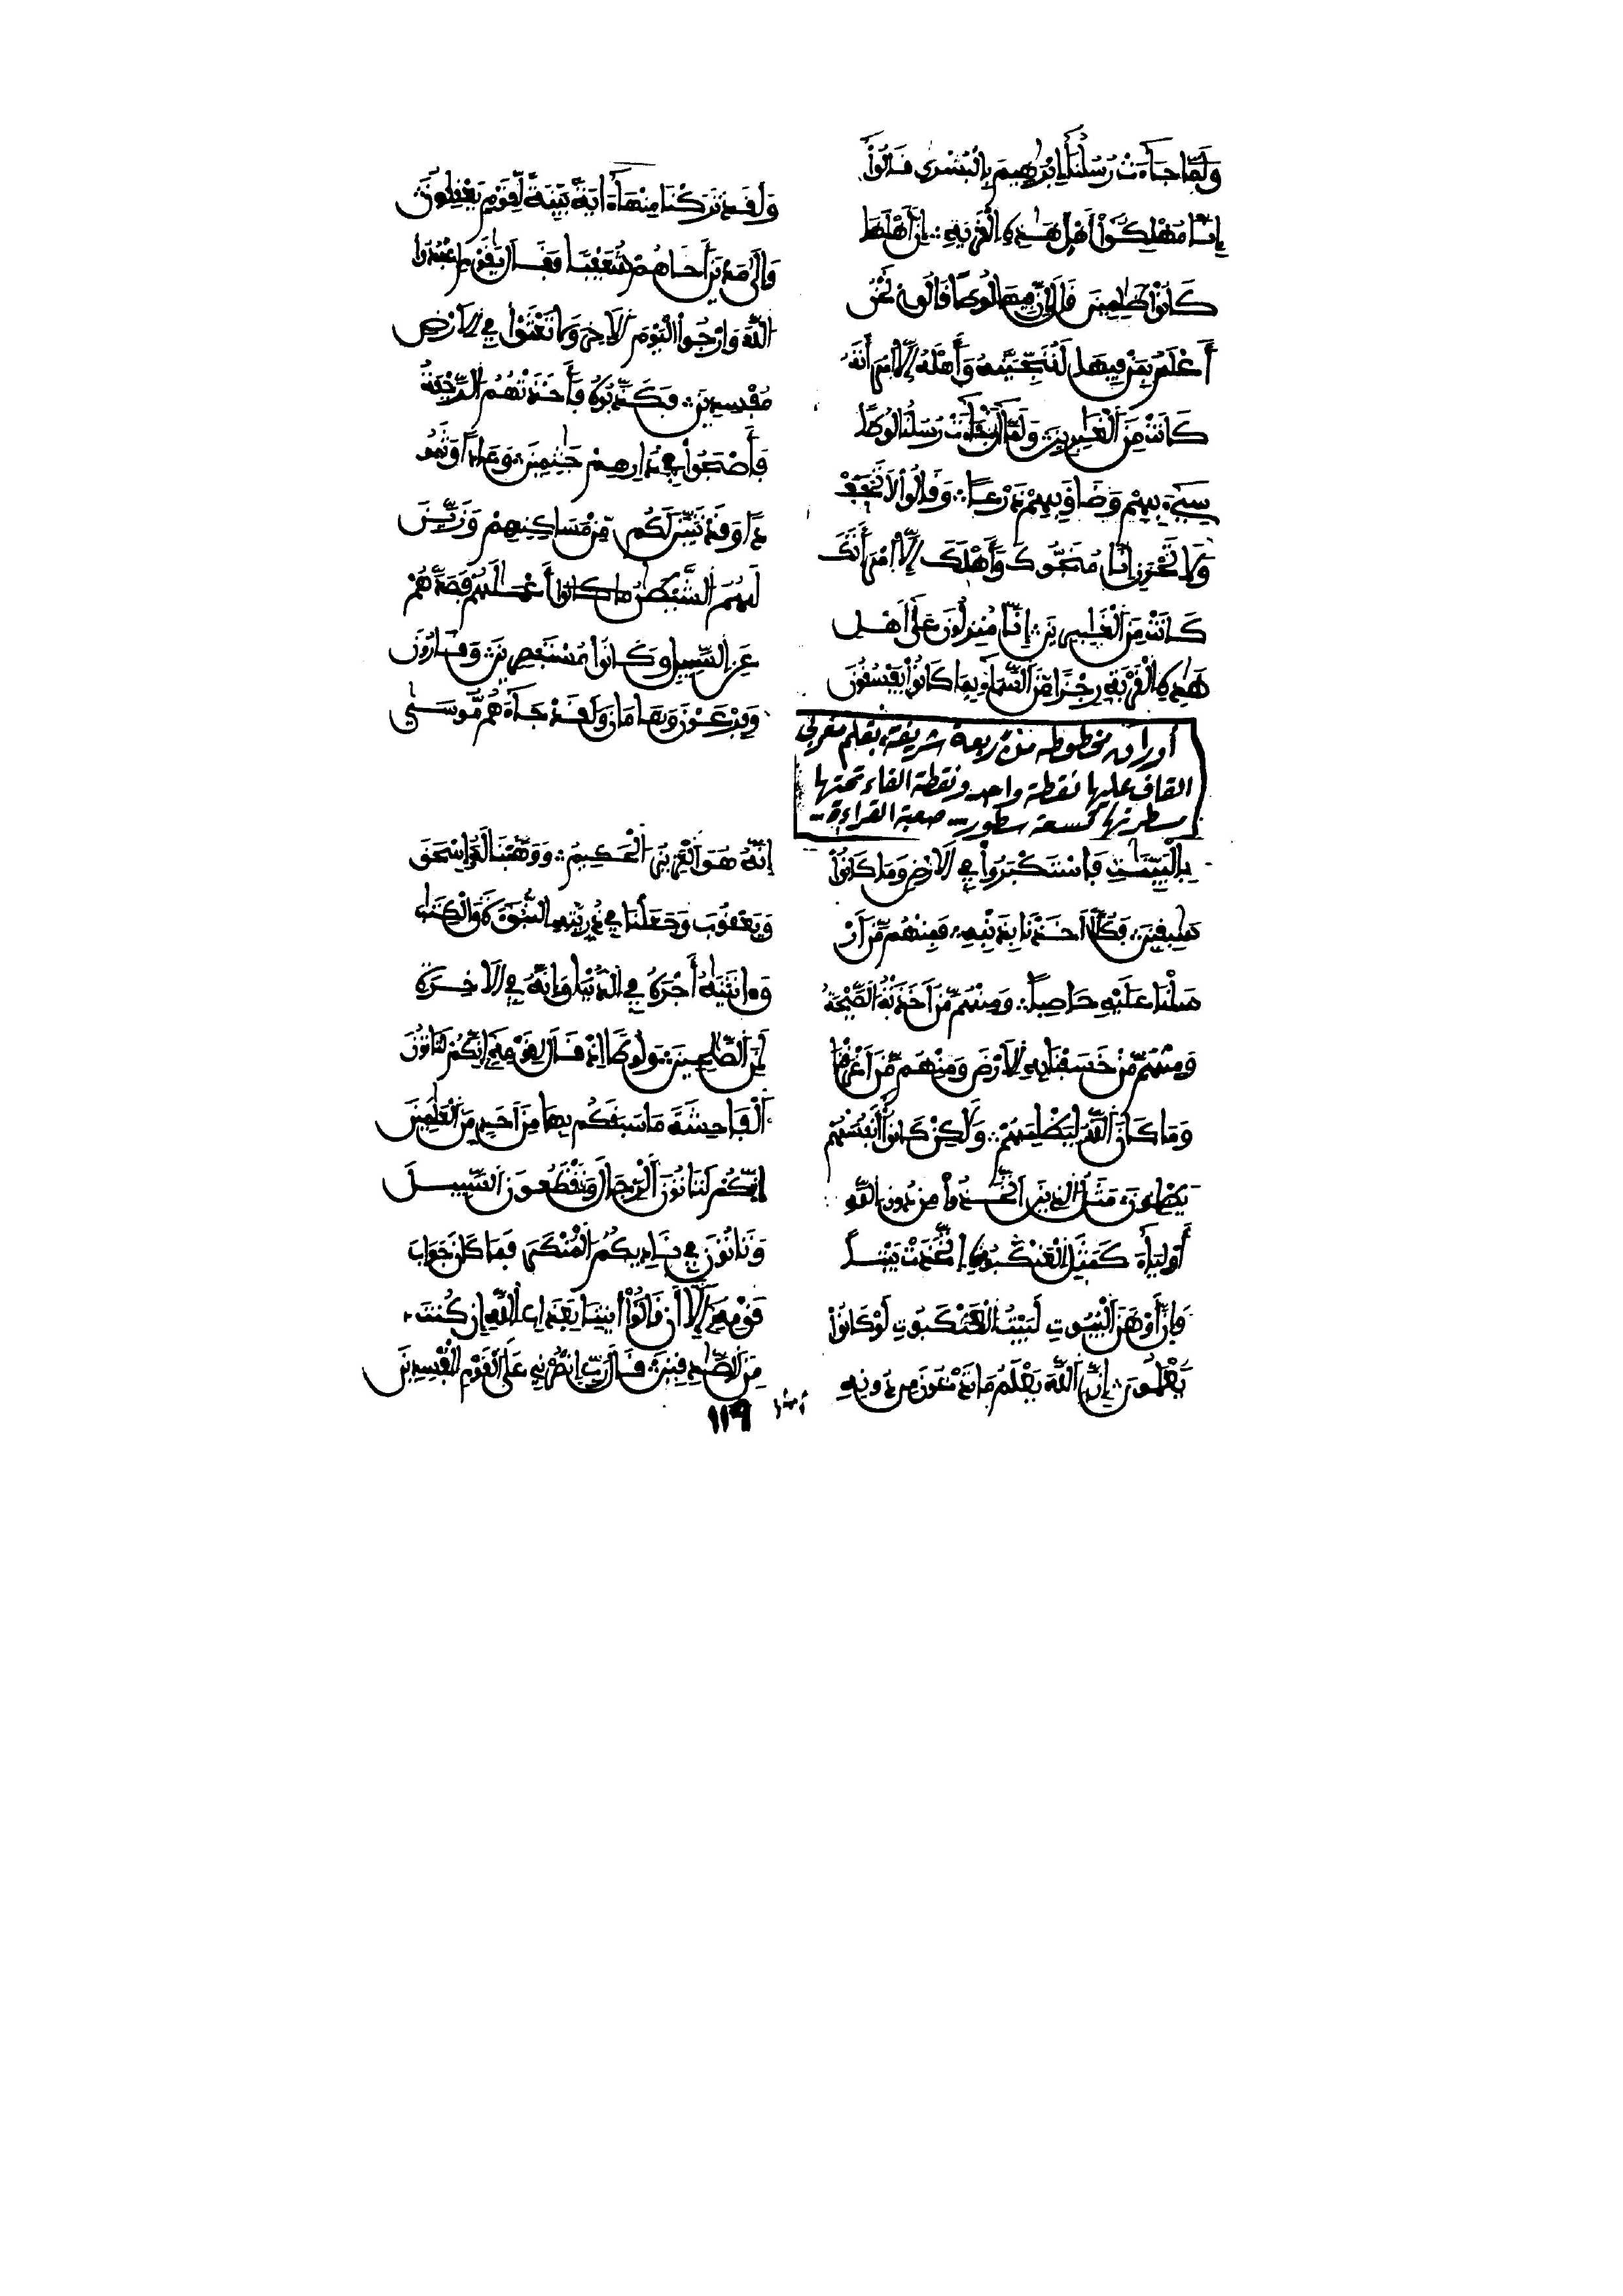 وَلَمَّا جَآءَتْ رُسُلُنَآ إِبْرَٰهِيمَ بِالْبُشْرَىٰ قَالُوٓاْ
إِنَّا مُهْلِكُوٓاْ أَهْلِ هَٰذِهِ الْقَرْيَةِ إِنَّ أَهْلَهَا
كَانُواْ ظَٰلِمِينَ قَالَ إِنَّ فِيهَا لُوطًا قَالُواْ نَحْنُ
أَعْلَمُ بِمَن فِيهَا لَنُنَجِّيَنَّهُ وَأَهْلَهُ إِلَّا امْرَأَتَهُ
كَانَتْ مِنَ الْغَٰبِرِينَ وَلَمَّآ أَن جَآءَتْ رُسُلُنَا لُوطًا
سِيٓءَ بِهِمْ وَضَاقَ بِهِمْ ذَرْعًا وَقَالُواْ لَا تَخَفْ
وَلَا تَحْزَنْ إِنَّا مُنَجُّوكَ وَأَهْلَكَ إِلَّا امْرَأَتَكَ
كَانَتْ مِنَ الْغَٰبِرِينَ إِنَّا مُنزِلُونَ عَلَىٰٓ أَهْلِ
هَٰذِهِ الْقَرْيَةِ رِجْزًا مِّنَ السَّمَآءِ بِمَا كَانُواْ يَفْسُقُونَ
وَلَقَد تَّرَكْنَا مِنْهَآ ءَايَةً بَيِّنَةً لِّقَوْمٍ يَعْقِلُونَ
وَإِلَىٰ مَدْيَنَ أَخَاهُمْ شُعَيْبًا فَقَالَ يَٰقَوْمِ اعْبُدُوا
اللَّهَ وَارْجُواْ الْيَوْمَ الْأَخِرَ وَلَا تَعْثَوْاْ فِي الْأَرْضِ
مُفْسِدِينَ فَكَذَّبُوهُ فَأَخَذَتْهُمُ الرَّجْفَةُ
فَأَصْبَحُواْ فِي دَارِهِمْ جَٰثِمِينَ وَعَادًا وَثَمُو
دًا وَقَد تَّبَيَّنَ لَكُم مِّن مَّسَاكِنِهِمْ وَزَيَّنَ
لَهُمُ الشَّيْطَٰنُ أَعْمَٰلَهُمْ فَصَدَّهُمْ
عَنِ السَّبِيلِ وَكَانُواْ مُسْتَبْصِرِينَ وَقَارُونَ
وَفِرْعَوْنَ وَهَامَانَ وَلَقَدْ جَآءَهُم مُّوسَىٰ
أوراق مخطوطه من ربعة شريفة، بقلم مغربي
القاف عليها نقطة واحدة ونقطة الفاء تحتها
مسطرتها تسعة سطور... صعبة القراءة...
بِالْبَيِّنَٰتِ فَاسْتَكْبَرُواْ فِي الْأَرْضِ وَمَا كَانُواْ
سَٰبِقِينَ فَكُلًّا أَخَذْنَا بِذَنبِهِ فَمِنْهُم مَّنْ أَرْ
سَلْنَا عَلَيْهِ حَاصِبًا وَمِنْهُم مَّنْ أَخَذَتْهُ الصَّيْحَةُ
وَمِنْهُم مَّنْ خَسَفْنَا بِهِ الْأَرْضَ وَمِنْهُم مَّنْ أَغْرَقْنَا
وَمَا كَانَ اللَّهُ لِيَظْلِمَهُمْ وَلَٰكِن كَانُواْ أَنفُسَهُمْ
يَظْلِمُونَ مَثَلُ الَّذِينَ اتَّخَذُواْ مِن دُونِ اللَّهِ
أَوْلِيَآءَ كَمَثَلِ الْعَنكَبُوتِ اتَّخَذَتْ بَيْتًا
وَإِنَّ أَوْهَنَ الْبُيُوتِ لَبَيْتُ الْعَنكَبُوتِ لَوْ كَانُواْ
يَعْلَمُونَ إِنَّ اللَّهَ يَعْلَمُ مَا تَدْعُونَ مِن دُونِهِ
إِنَّهُ هُوَ الْعَزِيزُ الْحَكِيمُ وَوَهَبْنَا لَهُ إِسْحَٰقَ
وَيَعْقُوبَ وَجَعَلْنَا فِي ذُرِّيَّتِهِ النُّبُوَّةَ وَالْكِتَٰبَ
وَءَاتَيْنَٰهُ أَجْرَهُ فِي الدُّنْيَا وَإِنَّهُ فِي الْأَخِرَةِ
لَمِنَ الصَّٰلِحِينَ وَلُوطًا إِذْ قَالَ لِقَوْمِهِ إِنَّكُمْ لَتَاتُونَ
الْفَاحِشَةَ مَا سَبَقَكُم بِهَا مِنْ أَحَدٍ مِّنَ الْعَٰلَمِينَ
أَئِنَّكُمْ لَتَاتُونَ الرِّجَالَ وَتَقْطَعُونَ السَّبِيلَ
وَتَاتُونَ فِي نَادِيكُمُ الْمُنكَرَ فَمَا كَانَ جَوَابَ
قَوْمِهِ إِلَّآ أَن قَالُواْ ائْتِنَا بِعَذَابِ اللَّهِ إِن كُنتَ
مِنَ الصَّٰدِقِينَ قَالَ رَبِّ انصُرْنِي عَلَى الْقَوْمِ الْمُفْسِدِينَ
١١٩